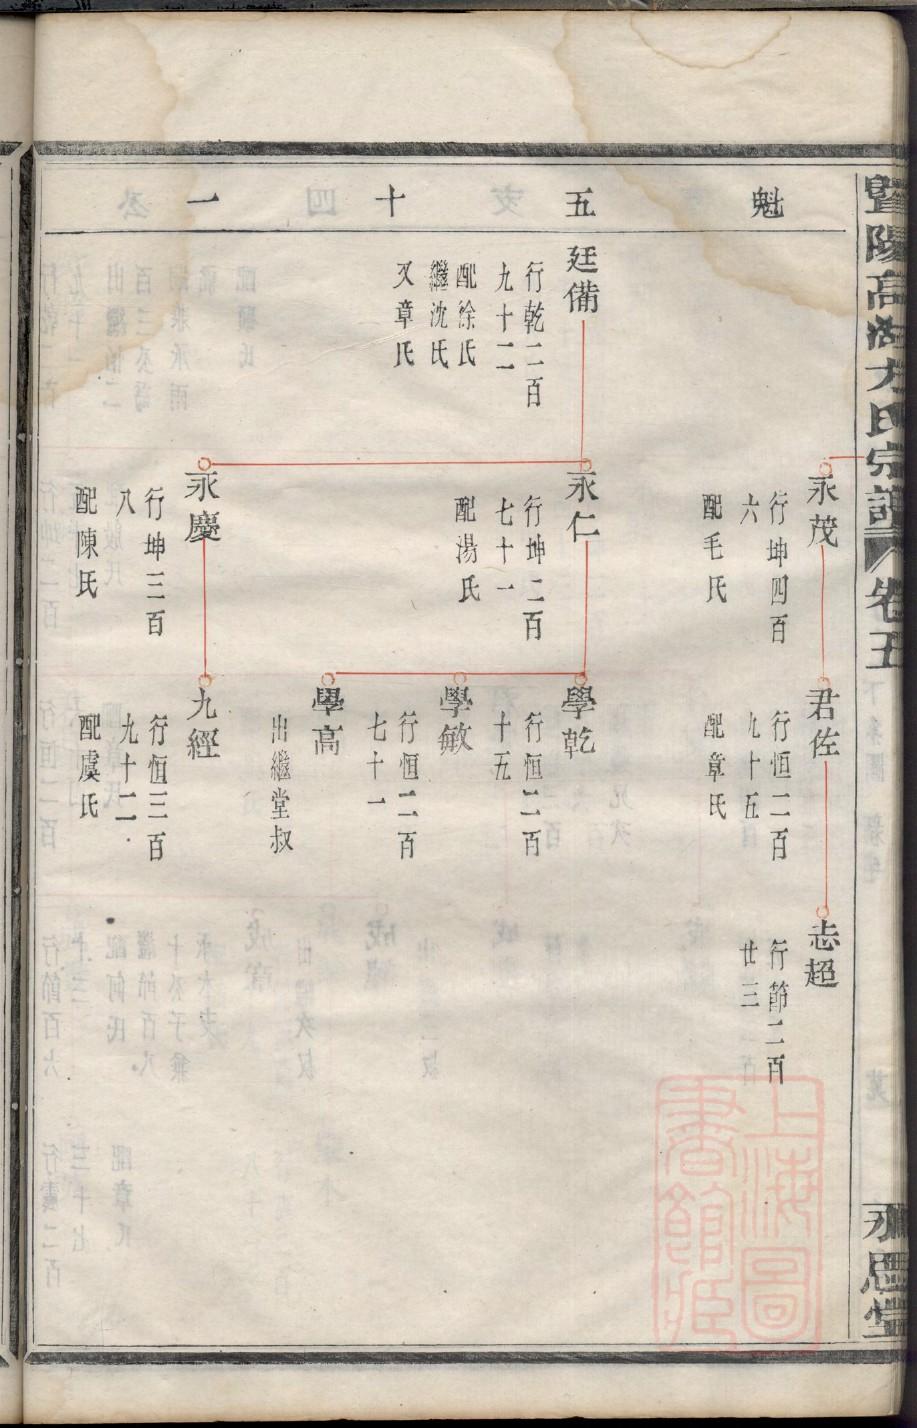 暨陽高湖方氏宗譜 卷五
永思堂
魁 五 十 一
永茂
行坤四百
六
配毛氏
君佐
行恒二百
九十五
配章氏
志超
行節二百
廿三
廷備
行乾二百
九十二
配徐氏
繼沈氏
又章氏
永仁
行坤二百
七十一
配湯氏
學乾
行恒二百
十五
學敏
行恒二百
七十一
學高
出繼堂叔
永慶
行坤三百
八
配陳氏
九經
行恒三百
九十二
配虞氏
上海圖
書館藏